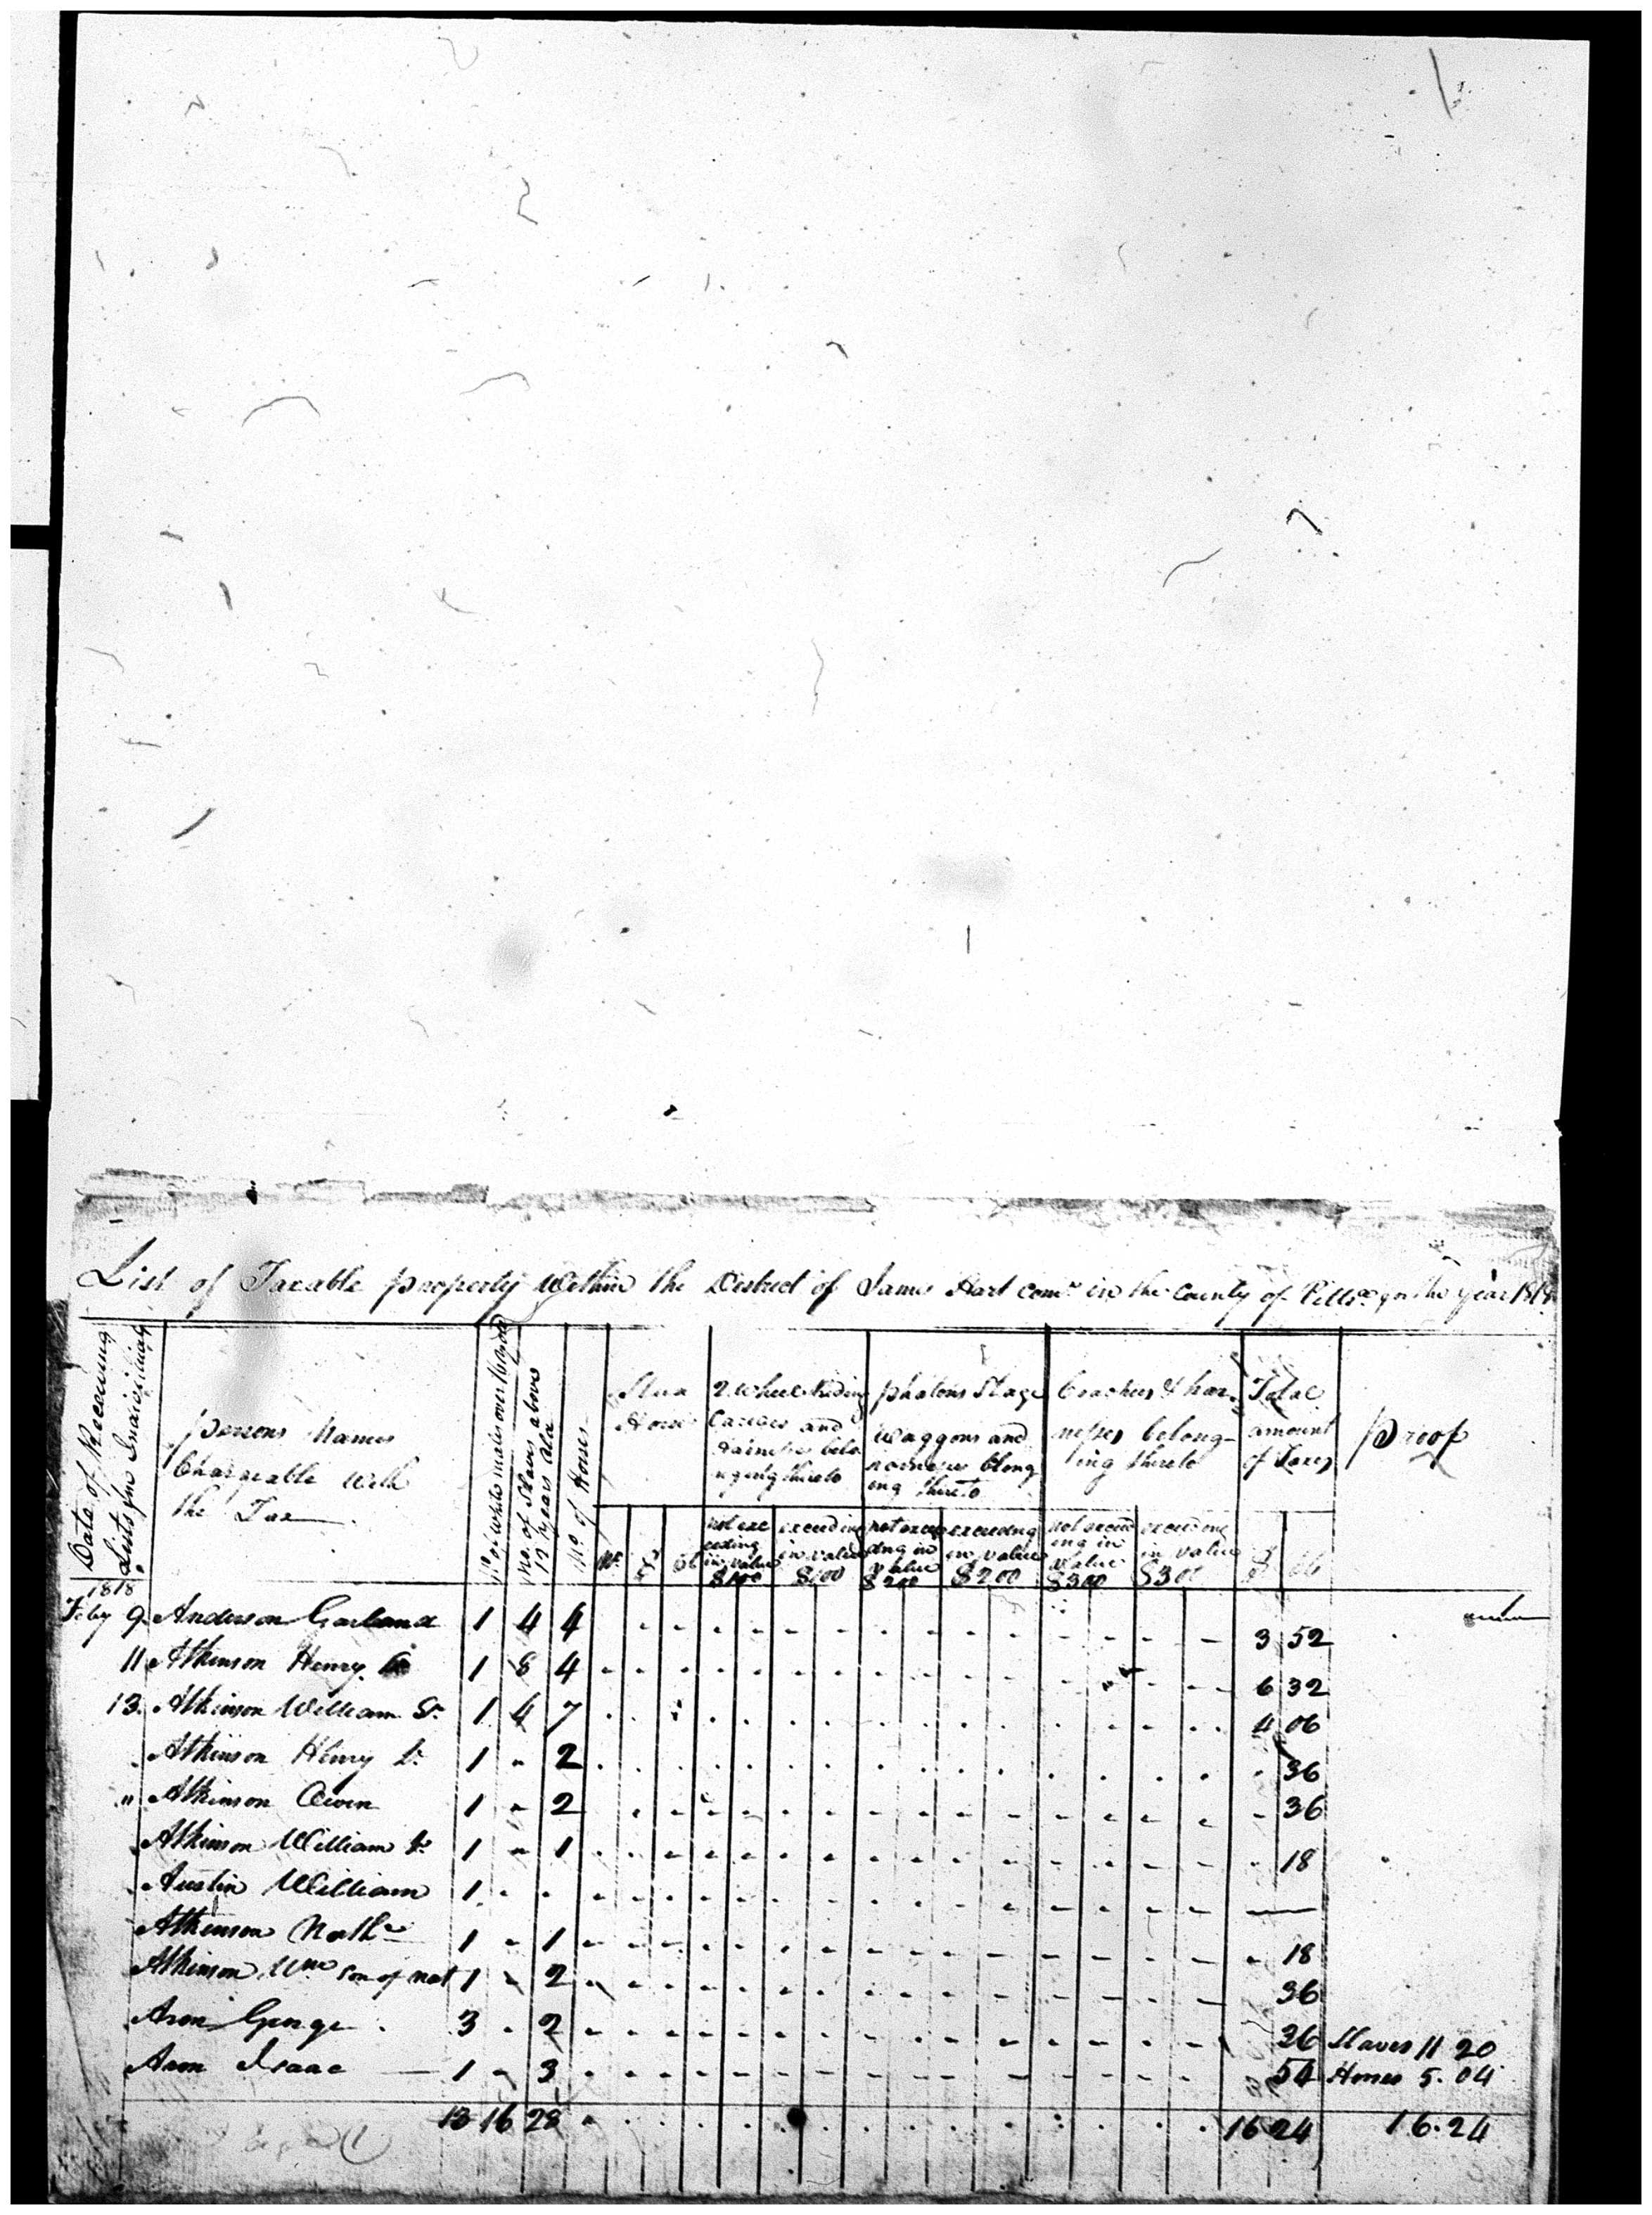 List of Taxable property Within the District of James Hart Comr. in the County of Pittsa. for the year 1818
Date of Receiving Lists from Individuals
persons Names Chargeable With the Tax
No. of white males over 16 years
No. of Slaves above 12 years old
No. of Horses
Stud Horses
2 wheel Riding Carriages and Harness belongeng thereto
phatons Stage Waggons and harness belonging thereto
Coaches & harnesses belonging thereto
Total amount of Taxes
proof
not exceeding in value $100
exceeding in value $100
not exceeding in value $200
exceeding in value $200
not exceeding in value $300
exceeding in value $300
1818
Feby 9 Anderson Garland 1 4 4 3 52
11 Atkinson Henry 1 8 4 6 32
13 Atkinson William Sr. 1 4 7 4 06
Atkinson Henry Jr. 1 - 2 36
" Atkinson Owen 1 - 2 36
Atkinson William Jr. 1 - 1 18
Austin William 1
Atkinson Nath 1 - 1 18
Atkinson Wm son of nat 1 - 2 36
Aron George 3 - 2 36 Slaves 11 20
Aron Isaac 1 - 3 54 Horses 5.04
13 16 28 16 24 16.24